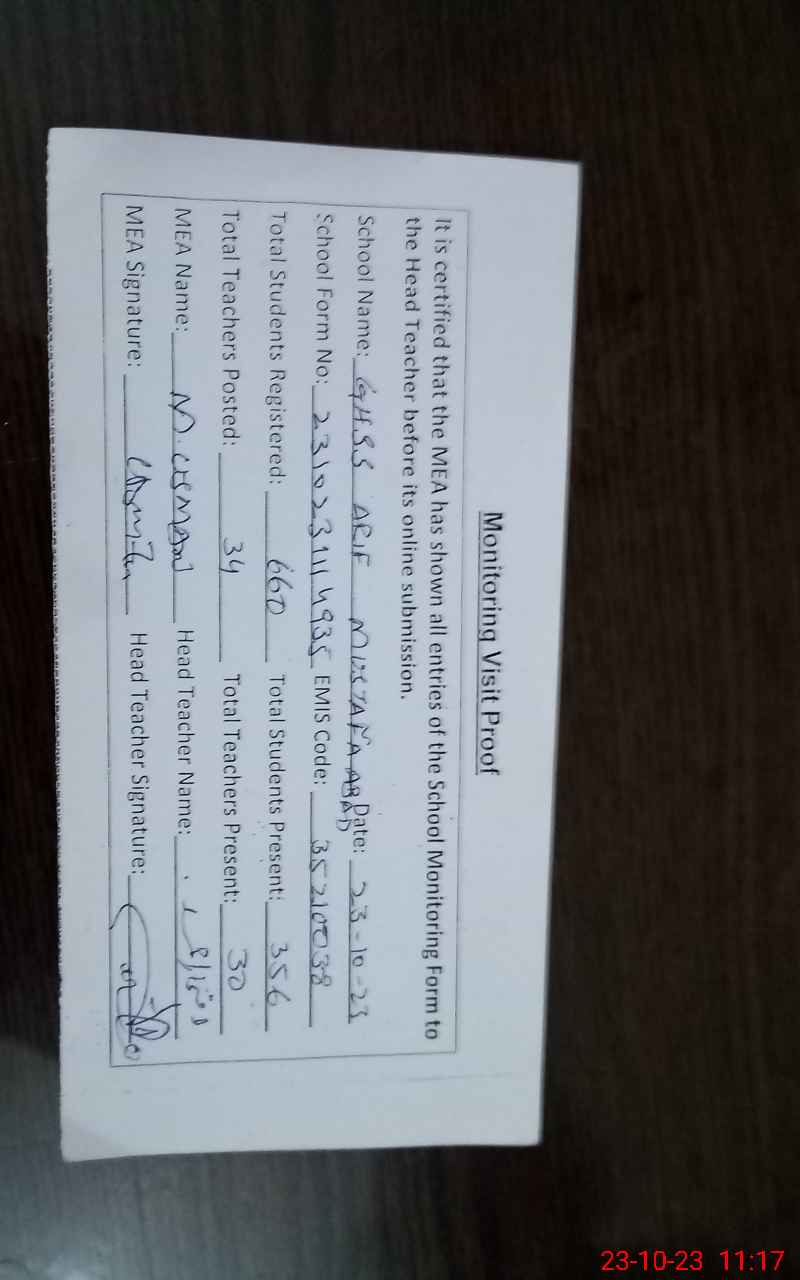 Monitoring Visit Proof
It is certified that the MEA has shown all entries of the School Monitoring Form to
the Head Teacher before its online submission.
School Name: GHSS ARIF MUSTAFA ABAD Date: 23-10-23
School Form No: 2310231114935 EMIS Code: 35210038
Total Students Registered: 660 Total Students Present: 356
Total Teachers Posted: 34 Total Teachers Present: 30
MEA Name: M. USMAN Head Teacher Name:
MEA Signature: Head Teacher Signature:
23-10-23 11:17